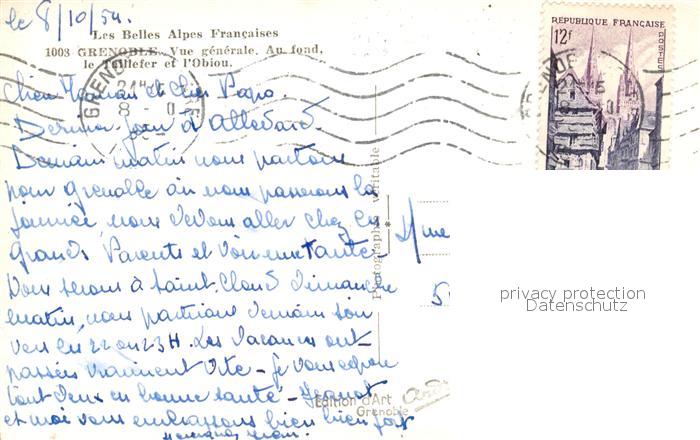 le 8/10/54.
Les Belles Alpes Françaises
1003 GRENOBLE. Vue générale. Au fond,
le Taillefer et l'Obiou.
Chère Maman et Cher Papa.
Dernier jour d'Allevard.
Demain matin nous partons
pour Grenoble où nous passerons la
journée, nous devons aller chez les
Grands Parents et voir une tante.
Nous serons à Saint. Cloud Dimanche
matin, nous partirons demain soir
vers les 22 ou 23H. Les Vacances ont
passées vraiment vite - Je vous espère
tout deux en bonne santé -
et moi vous embrassons bien bien fort
REPUBLIQUE FRANÇAISE
12f
POSTES
GRENOBLE
Photographie véritable
Mme
5
Edition d'Art
Grenoble
privacy protection
Datenschutz